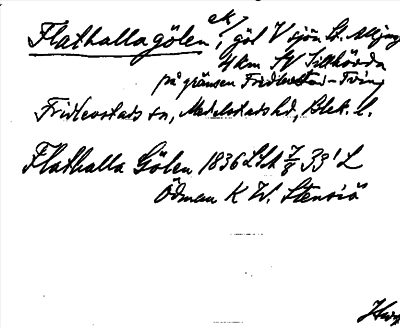 Flathallagölen, göl V sjön St. Alljung
4 km SV Tillhövda
på gränsen Fridlevstad-Tving
Fridlevstads sn, Medelstads hd, Blek. l.
Flathalla Gölen 1836 LSA 7/8 33' L
Ödman K W. Stensiö